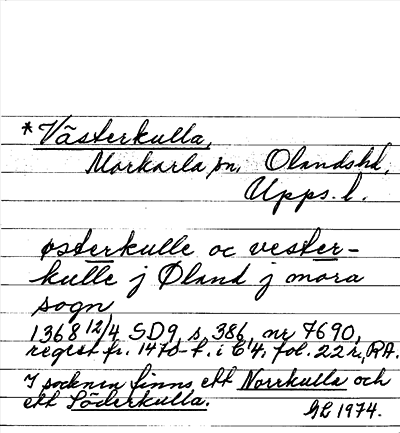 * Västerkulla,
Morkarla sn, Olandshd,
Upps. l.
østerkulle oc vester-
kulle j Øland j mora
sogn
1368 12/4 SD9, s. 386, nr 7690,
regist fr. 1470-t. i C4, fol. 22 r, RA.
I socknen finns ett Norrkulla och
ett Söderkulla.
GL 1974.